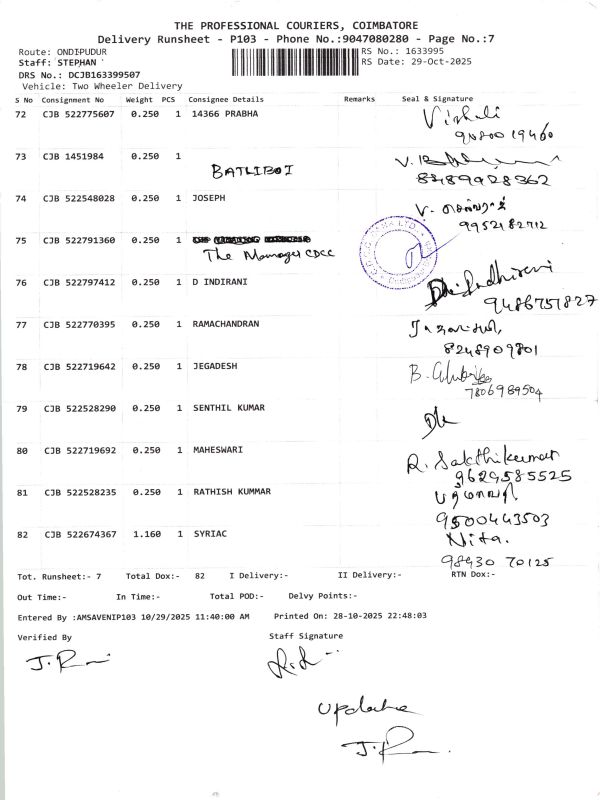 THE PROFESSIONAL COURIERS, COIMBATORE
Delivery Runsheet - P103 - Phone No.:9047080280 - Page No.:7
Route: ONDIPUDUR
RS No.: 1633995
Staff: STEPHAN
RS Date: 29-Oct-2025
DRS No.: DCJB163399507
Vehicle: Two Wheeler Delivery
S No Consignment No Weight PCS Consignee Details Remarks Seal & Signature
72 CJB 522775607 0.250 1 14366 PRABHA
9080019460
73 CJB 1451984 0.250 1
BATLIBOI
8489928362
74 CJB 522548028 0.250 1 JOSEPH V. செல்வராஜ்
9952182712
75 CJB 522791360 0.250 1
The Manager CDCC
76 CJB 522797412 0.250 1 D INDIRANI
9486751827
77 CJB 522770395 0.250 1 RAMACHANDRAN
8248909801
78 CJB 522719642 0.250 1 JEGADESH
7806989504
79 CJB 522528290 0.250 1 SENTHIL KUMAR
80 CJB 522719692 0.250 1 MAHESWARI R. Sakthikumar
9629585525
81 CJB 522528235 0.250 1 RATHISH KUMMAR
9500443503
82 CJB 522674367 1.160 1 SYRIAC Nita.
98430 70125
Tot. Runsheet:- 7 Total Dox:- 82 I Delivery:- II Delivery:- RTN Dox:-
Out Time:- In Time:- Total POD:- Delvy Points:-
Entered By :AMSAVENIP103 10/29/2025 11:40:00 AM Printed On: 28-10-2025 22:48:03
Verified By Staff Signature